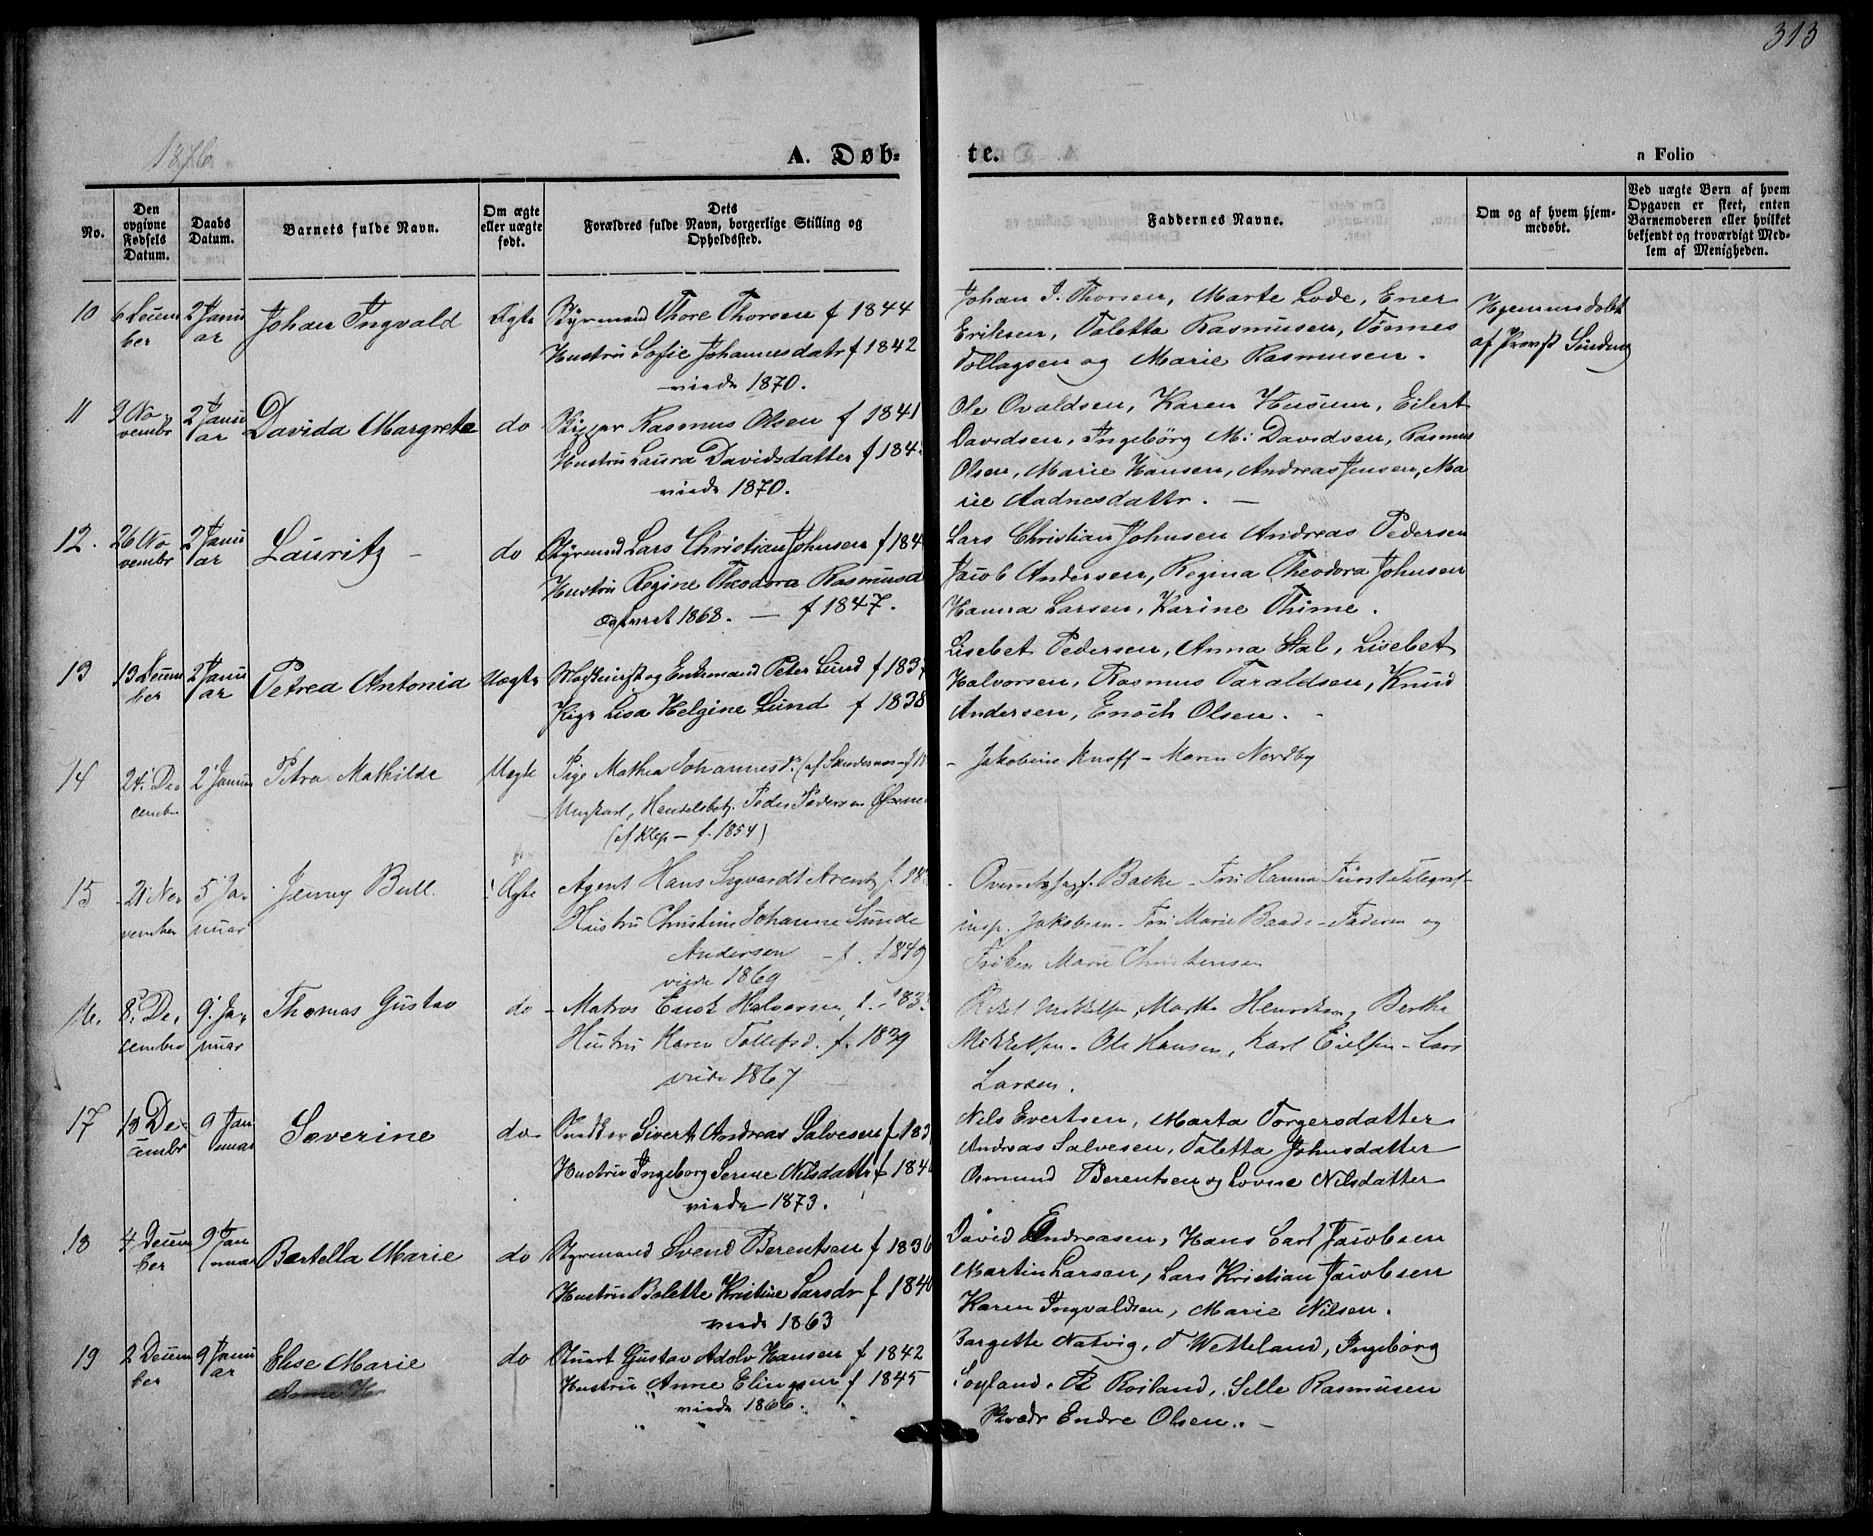 313
1876
A. Døb-
te.
n Folio
No.
Den opgivne Fødsels Datum.
Daabs Datum.
Barnets fulde Navn.
Om ægte eller uægte født.
Dets Forældres fulde Navn, borgerlige Stilling og Opholdssted.
Faddernes Navne.
Om og af hvem hjem-medøbt.
Ved uægte Børn af hvem Opgaven er skeet, enten Barnemoderen eller hvilket bekjendt og troværdigt Med-lem af Menigheden.
10 6 Decem 2 Janu Johan Ingvald Ægte Styrmand Thore Thorsen f 1844
ber ar Hustru Sofie Johannesdatr f 1842
viede 1870.
Johan T. Thorsen, Marte Lode, Ener
Eriksen, Taletta Rasmusen, Tönnes
Tollagsen og Marie Rasmusen.
Hjemmedøbt
af Provst Sinding
11 9 No 2 Janu Davida Margrete do Skipper Rasmus Olsen f 1841
vembr ar Hustru Laura Davidsdatter f 184
viede 1870.
Ole Ovaldsen, Karen Husum, Eilert
Davidsen, Ingebörg M: Davidsen, Rasmus
Olsen, Marie Hansen, Andreas Jensen, Ma
rie Aadnesdattr. —
12. 26 No 2 Janu Lauritz — do Styrmand Lars Christian Johnsen f 184
vembr ar Hustru Regine Theodora Rasmusd
1868. — f 1847.
Lars Christian Johnsen Andreas Pedersen
Jacob Andersen, Regina Theodora Johnsen
Hanna Larsen, Karine Thime.
13 13 Decem 2 Janu Petrea Antonia Uægte Maskinist og Enkemand Peter Lund f 183
ber ar Pige Lisa Helgine Lund f 1838
Lisebet Pedersen, Anna Stal, Lisebet
Halvorsen, Rasmus Taraldsen, Knud
Andersen, Enoch Olsen. -
14 24 De 2 Januar Petra Mathilde Uægte Pige Mathea Johannesd. (af Sandesnes - f 18
cember Ungkarl, Handelsbetj. Peder Pedersen
(af Klep - f. 1854)
- Jakobine Knoff - Maren Nordby
15 21 No- 5 Ja- Jenny Bull Ægte Agent Hans Sigvardt Arentz f. 18
vember nuar Hustru Christine Johanne Sunde
Andersen - f. 1849
viede 1869
- Backe - Fru Hanna Fürst Telegraf-
insp. Jakobsen - Fru Marie Baade - Faderen og
Frøken Marie Christensen
16. 8 De- 9 Ja- Thomas Gustav do - Matros Enok Halvorsen, f. 183
cembr nuar Hustru Karen Tollefsd. f. 1839
viede 1867
Mikkelsen, Martha Henriksen, Bertha
Mikkelsen - Ole Hansen, Karl Eielsen - Lars
Larsen.
17 19 De- 9 Jan Severine do Sivert Andreas Salvesen f 183
cembr nuar Hustru Ingeborg Serine Nilsdattr f 184
viede 1873.
Nils Evertsen, Marta Torgersdatter
Andreas Salvesen, Taletta Johnsdatter
Osmund Berentsen og Lovise Nilsdatter
18 4 Decem 9 Jan Bertella Marie do Styrmand Svend Berentsen f 1836
ber nuar Hustru Bolette Kristine Larsdr f 1840
viede 1863
David Andreasen, Hans Carl Jacobsen
Martin Larsen, Lars Kristian Jacobsen
Karen Ingvaldsen, Marie Nilsen.
19 2 Decem 9 Janu Elise Marie do Stuart Gustav Adolv Hansen f 1842
ber ar Hustru Anne Elingsen f 1845
viede 1866.
Bargette Natvig, T Wetteland, Ingebörg
Soyland. R Roiland, Sille Rasmusen
Endre Olsen. -